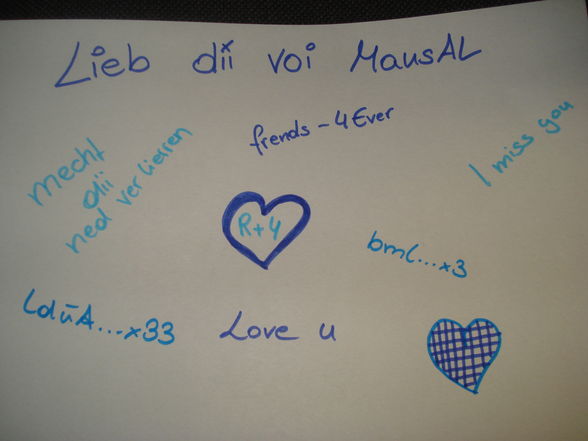 Lieb dii voi MausAL
frends - 4 Ever
I miss you
mecht
dii
ned verlierren
R+4
bml...x3
LdüA...x33
Love u